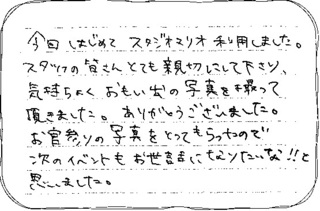 今回 はじめて スタジオマリオ 利用しました。
スタッフの皆さんとても親切にして下さり、
気持ちよく おもい出の写真を撮って
頂きました。ありがとうございました。
お宮参りの写真をとってもらったので
次のイベントもお世話になりたいな!!と
思いました。